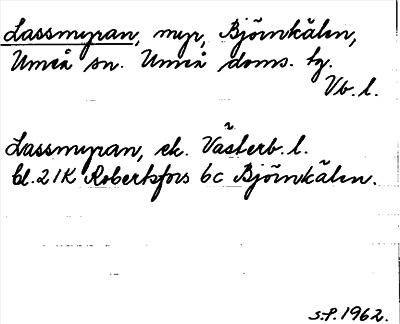 Lassmyran, myr, Björnkälen,
Umeå sn. Umeå doms. tg.
Vb. l.
Lassmyran, ek. Västerb. l.
bl. 21K Robertsfors 6c Björnkälen.
s.f. 1962.